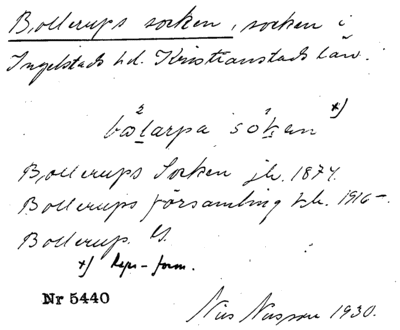 Bollerups socken, socken i
Ingelstads hd. Kristianstads län.
bålarpa sókan x)
Bollerups Socken jb. 1874.
Bollerups församling kb. 1916-.
Bollerup. G.
x) Repr-form.
Nr 5440
Nils 1930.